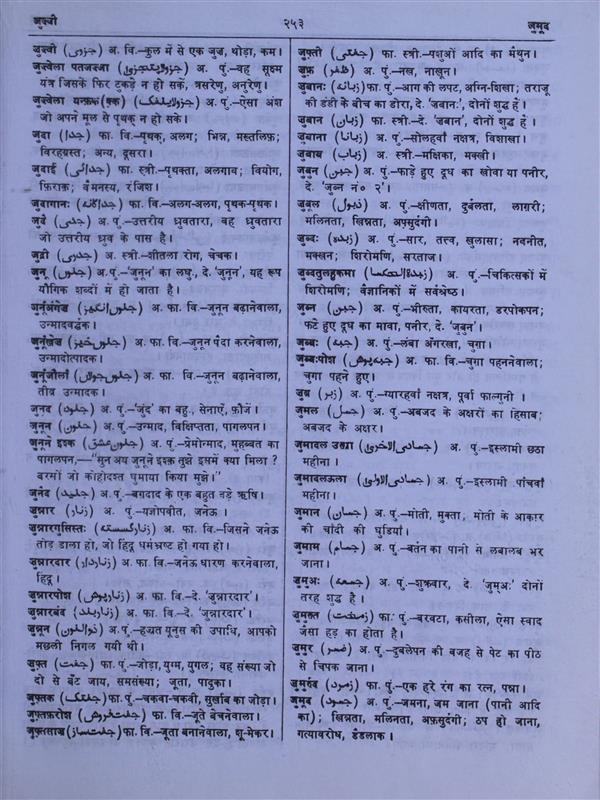 जुज़्वी
२५३
जुमूद
जुज़्वी (جزوی) अ. वि.–कुल में से एक जुज़, थोड़ा, कम।
जुज़्वेला यतजज़्ज़ा (جزولایتجزیٰ) अ. पुं.–वह सूक्ष्म
यंत्र जिसके फिर टुकड़े न हो सकें, त्रसरेणु, अनुरेणु।
जुज़्वेला यन्फ़क(क्क) (جزولاینفک) अ. पुं.–ऐसा अंश
जो अपने मूल से पृथक् न हो सके।
जुदा (جدا) फा. वि.–पृथक्, अलग; भिन्न, मख़्तलिफ़;
विरहग्रस्त; अन्य, दूसरा।
जुदाई (جدائی) फा. स्त्री.–पृथक्ता, अलगाव; वियोग,
फ़िराक़; वैमनस्य, रंजिश।
जुदागानः (جداگانہ) फा. वि.–अलग-अलग, पृथक-पृथक।
जुदै (جدی) अ. पुं.–उत्तरीय ध्रुवतारा, वह ध्रुवतारा
जो उत्तरीय ध्रुव के पास है।
जुद्री (جدری) अ. स्त्री.–शीतला रोग, चेचक।
जुनूं (جنوں) अ. पुं.–'जुनून' का लघु, दे. 'जुनून', यह रूप
यौगिक शब्दों में हो जाता है।
जुनूंअंगेज़ (جنوں انگیز) अ. फा. वि.–जुनून बढ़ानेवाला,
उन्मादवर्द्धक।
जुनूंख़ेज़ (جنوں خیز) अ. फा. वि.–जुनून पैदा करनेवाला,
उन्मादोत्पादक।
जुनूंजौलां (جنوں جولاں) अ. फा. वि.–जुनून बढ़ानेवाला,
तीव्र उन्मादक।
जुनूद (جنود) अ. पुं.–'जुंद' का बहु., सेनाएँ, फ़ौजें।
जुनून (جنون) अ. पुं.–उन्माद, विक्षिप्तता, पागलपन।
जुनूने इश्क़ (جنون عشق) अ. पुं.–प्रेमोन्माद, मुहब्बत का
पागलपन,–"सुन अय जुनूने इश्क़ तुझे इसमें क्या मिला ?
बरसों जो कोहोदश्त घुमाया किया मुझे।"
जुनैद (جنید) अ. पुं.–बग़दाद के एक बहुत बड़े ऋषि।
जुन्नार (زنار) अ. पुं.–यज्ञोपवीत, जनेऊ।
जुन्नारगुसिस्तः (زنارگسستہ) अ. फा. वि.–जिसने जनेऊ
तोड़ डाला हो, जो हिंदू धर्मभ्रष्ट हो गया हो।
जुन्नारदार (زناردار) अ. फा. वि.–जनेऊ धारण करनेवाला,
हिंदू।
जुन्नारपोश (زنارپوش) अ. फा. वि.–दे. 'जुन्नारदार'।
जुन्नारबंद (زناربند) अ. फा. वि.–दे. 'जुन्नारदार'।
जुन्नून (ذوالنون) अ. पुं.–हज़्रत यूनुस की उपाधि, आपको
मछली निगल गयी थी।
जुफ़्त (جفت) फा. पुं.–जोड़ा, युग्म, युगल; वह संख्या जो
दो से बँट जाय, समसंख्या; जूता, पादुका।
जुफ़्तक (جفتک) फा. पुं.–चकवा-चकवी, सुर्ख़ाब का जोड़ा।
जुफ़्तफ़रोश (جفت فروش) फा. वि.–जूते बेचनेवाला।
जुफ़्तसाज़ (جفت ساز) फा. वि.–जूता बनानेवाला, शू-मेकर।
जुफ़्ती (جفتی) फा. स्त्री.–पशुओं आदि का मैथुन।
जुफ़्र (ظفر) अ. पुं.–नख, नाखून।
जुबानः (زبانہ) फा. पुं.–आग की लपट, अग्नि-शिखा; तराजू
की डंडी के बीच का डोरा, दे. 'जबानः', दोनों शुद्ध हैं।
जुबान (زبان) फा. स्त्री.–दे. 'जबान', दोनों शुद्ध हैं।
जुबाना (زبانا) अ. पुं.–सोलहवाँ नक्षत्र, विशाखा।
जुबाब (زباب) अ. स्त्री.–मक्षिका, मक्खी।
जुबुन (جبن) अ. पुं.–फाड़े हुए दूध का खोवा या पनीर,
दे. 'जुब्न नं० २'।
जुबूल (ذبول) अ. पुं.–क्षीणता, दुर्बलता, लाग़री;
मलिनता, खिन्नता, अफ़्सुर्दगी।
जुब्दः (زبدہ) अ. पुं.–सार, तत्त्व, ख़ुलासा; नवनीत,
मक्खन; शिरोमणि, सरताज।
जुब्दतुलहुकमा (زبدۃالحکما) अ. पुं.–चिकित्सकों में
शिरोमणि; वैज्ञानिकों में सर्वश्रेष्ठ।
जुब्न (جبن) अ. पुं.–भीरुता, कायरता, डरपोकपन;
फटे हुए दूध का मावा, पनीर, दे. 'जुबुन'।
जुब्बः (جبہ) अ. पुं.–लंबा अंगरखा, चुग़ा।
जुब्बःपोश (جبہ پوش) अ. फा. वि.–चुग़ा पहननेवाला;
चुग़ा पहने हुए।
जुब्र (زبر) अ. पुं.–ग्यारहवाँ नक्षत्र, पूर्वा फाल्गुनी।
जुमल (جمل) अ. पुं.–अबजद के अक्षरों का हिसाब;
अबजद के अक्षर।
जुमादल उख़्रा (جمادی الاخریٰ) अ. पुं.–इस्लामी छठा
महीना।
जुमादलऊला (جمادی الاولیٰ) अ. पुं.–इस्लामी पाँचवाँ
महीना।
जुमान (جمان) अ. पुं.–मोती, मुक्ता, मोती के आकार
की चाँदी की घुंडियाँ।
जुमाम (جمام) अ. पुं.–बर्तन का पानी से लबालब भर
जाना।
जुमुअः (جمعہ) अ. पुं.–शुक्रवार, दे. 'जुमुअः' दोनों
तरह शुद्ध है।
जुमुख़्त (زمخت) फा. पुं.–बरबटा, कसीला, ऐसा स्वाद
जैसा हड़ का होता है।
जुमुर (ضمر) अ. पुं.–दुबलेपन की वजह से पेट का पीठ
से चिपक जाना।
जुमुर्रुद (زمرد) फा. पुं.–एक हरे रंग का रत्न, पन्ना।
जुमूद (جمود) अ. पुं.–जमना, जम जाना (पानी आदि
का); खिन्नता, मलिनता, अफ़्सुर्दगी; ठप हो जाना,
गत्यावरोध, डेडलाक।